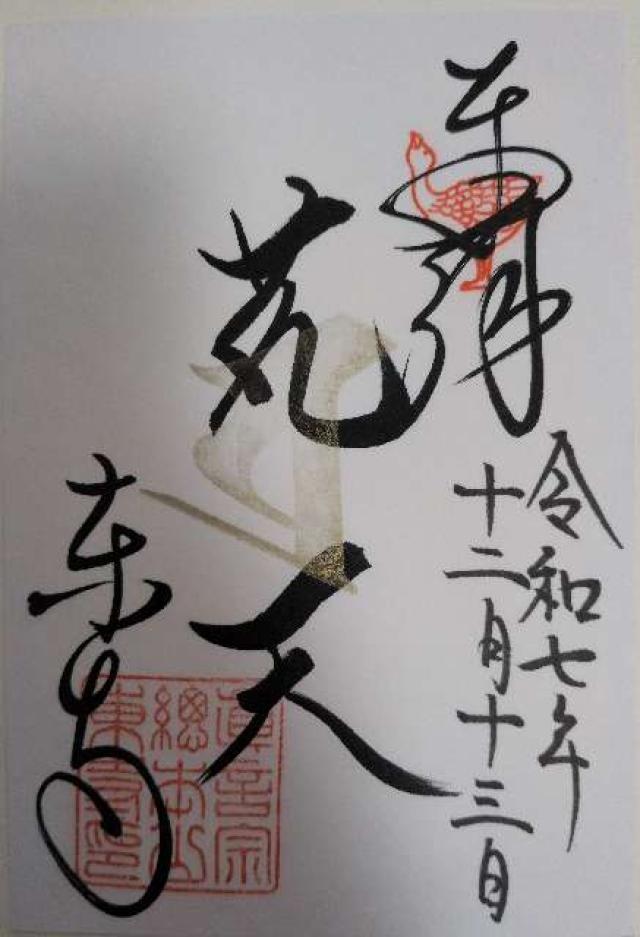 奉拝
令和七年
十二月十三日
梵天
東寺
眞言宗
總本山
東寺印